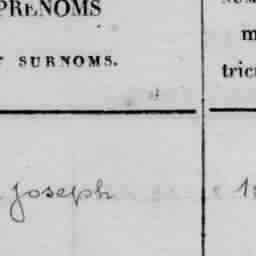 PRENOMS
SURNOMS.
m
tric
Joseph